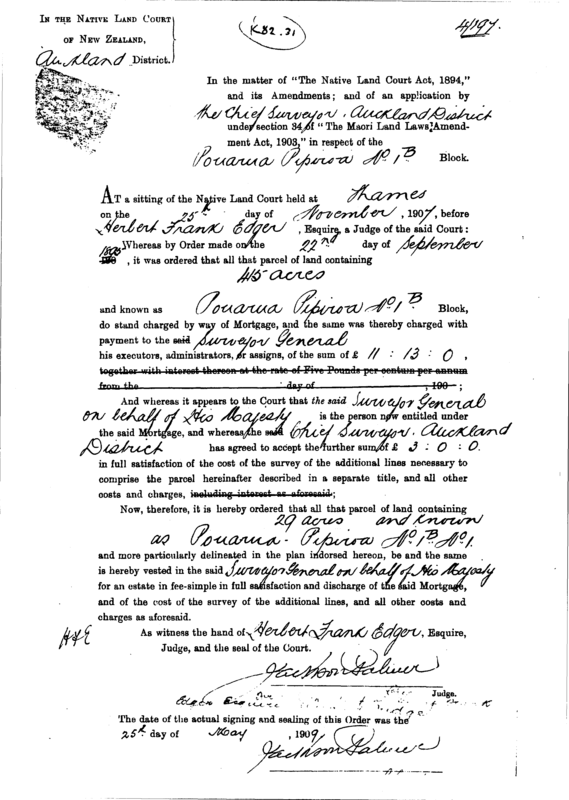 IN THE NATIVE LAND COURT
OF NEW ZEALAND,
Auckland District.
K82.31
4/197.
In the matter of "The Native Land Court Act, 1894,"
and its Amendments; and of an application by
the Chief Surveyor, Auckland District
under section 34 of "The Maori Land Laws Amend-
ment Act, 1903," in respect of the
Pouarua Pipiroa No. 1B Block.
AT a sitting of the Native Land Court held at Thames
on the 25th day of November, 1907, before
Herbert Frank Edger, Esquire, a Judge of the said Court:
Whereas by Order made on the 22nd day of September
, it was ordered that all that parcel of land containing
415 acres
and known as Pouarua Pipiroa No. 1B Block,
do stand charged by way of Mortgage, and the same was thereby charged with
payment to the said Surveyor General
his executors, administrators, or assigns, of the sum of £ 11 : 13 : 0,
together with interest thereon at the rate of Five Pounds per centum per annum
from the day of , 190 ;
And whereas it appears to the Court that the said Surveyor General
on behalf of His Majesty is the person now entitled under
the said Mortgage, and whereas the said Chief Surveyor, Auckland
District has agreed to accept the further sum of £ 3 : 0 : 0.
in full satisfaction of the cost of the survey of the additional lines necessary to
comprise the parcel hereinafter described in a separate title, and all other
costs and charges, including interest as aforesaid;
Now, therefore, it is hereby ordered that all that parcel of land containing
29 acres and known
as Pouarua-Pipiroa No. 1B No. 1.
and more particularly delineated in the plan indorsed hereon, be and the same
is hereby vested in the said Surveyor General on behalf of His Majesty
for an estate in fee-simple in full satisfaction and discharge of the said Mortgage,
and of the cost of the survey of the additional lines, and all other costs and
charges as aforesaid.
HFE
As witness the hand of Herbert Frank Edger, Esquire,
Judge, and the seal of the Court.
Jackson Palmer
Judge.
Edger Esquire
The date of the actual signing and sealing of this Order was the
25th day of May, 1909
Jackson Palmer